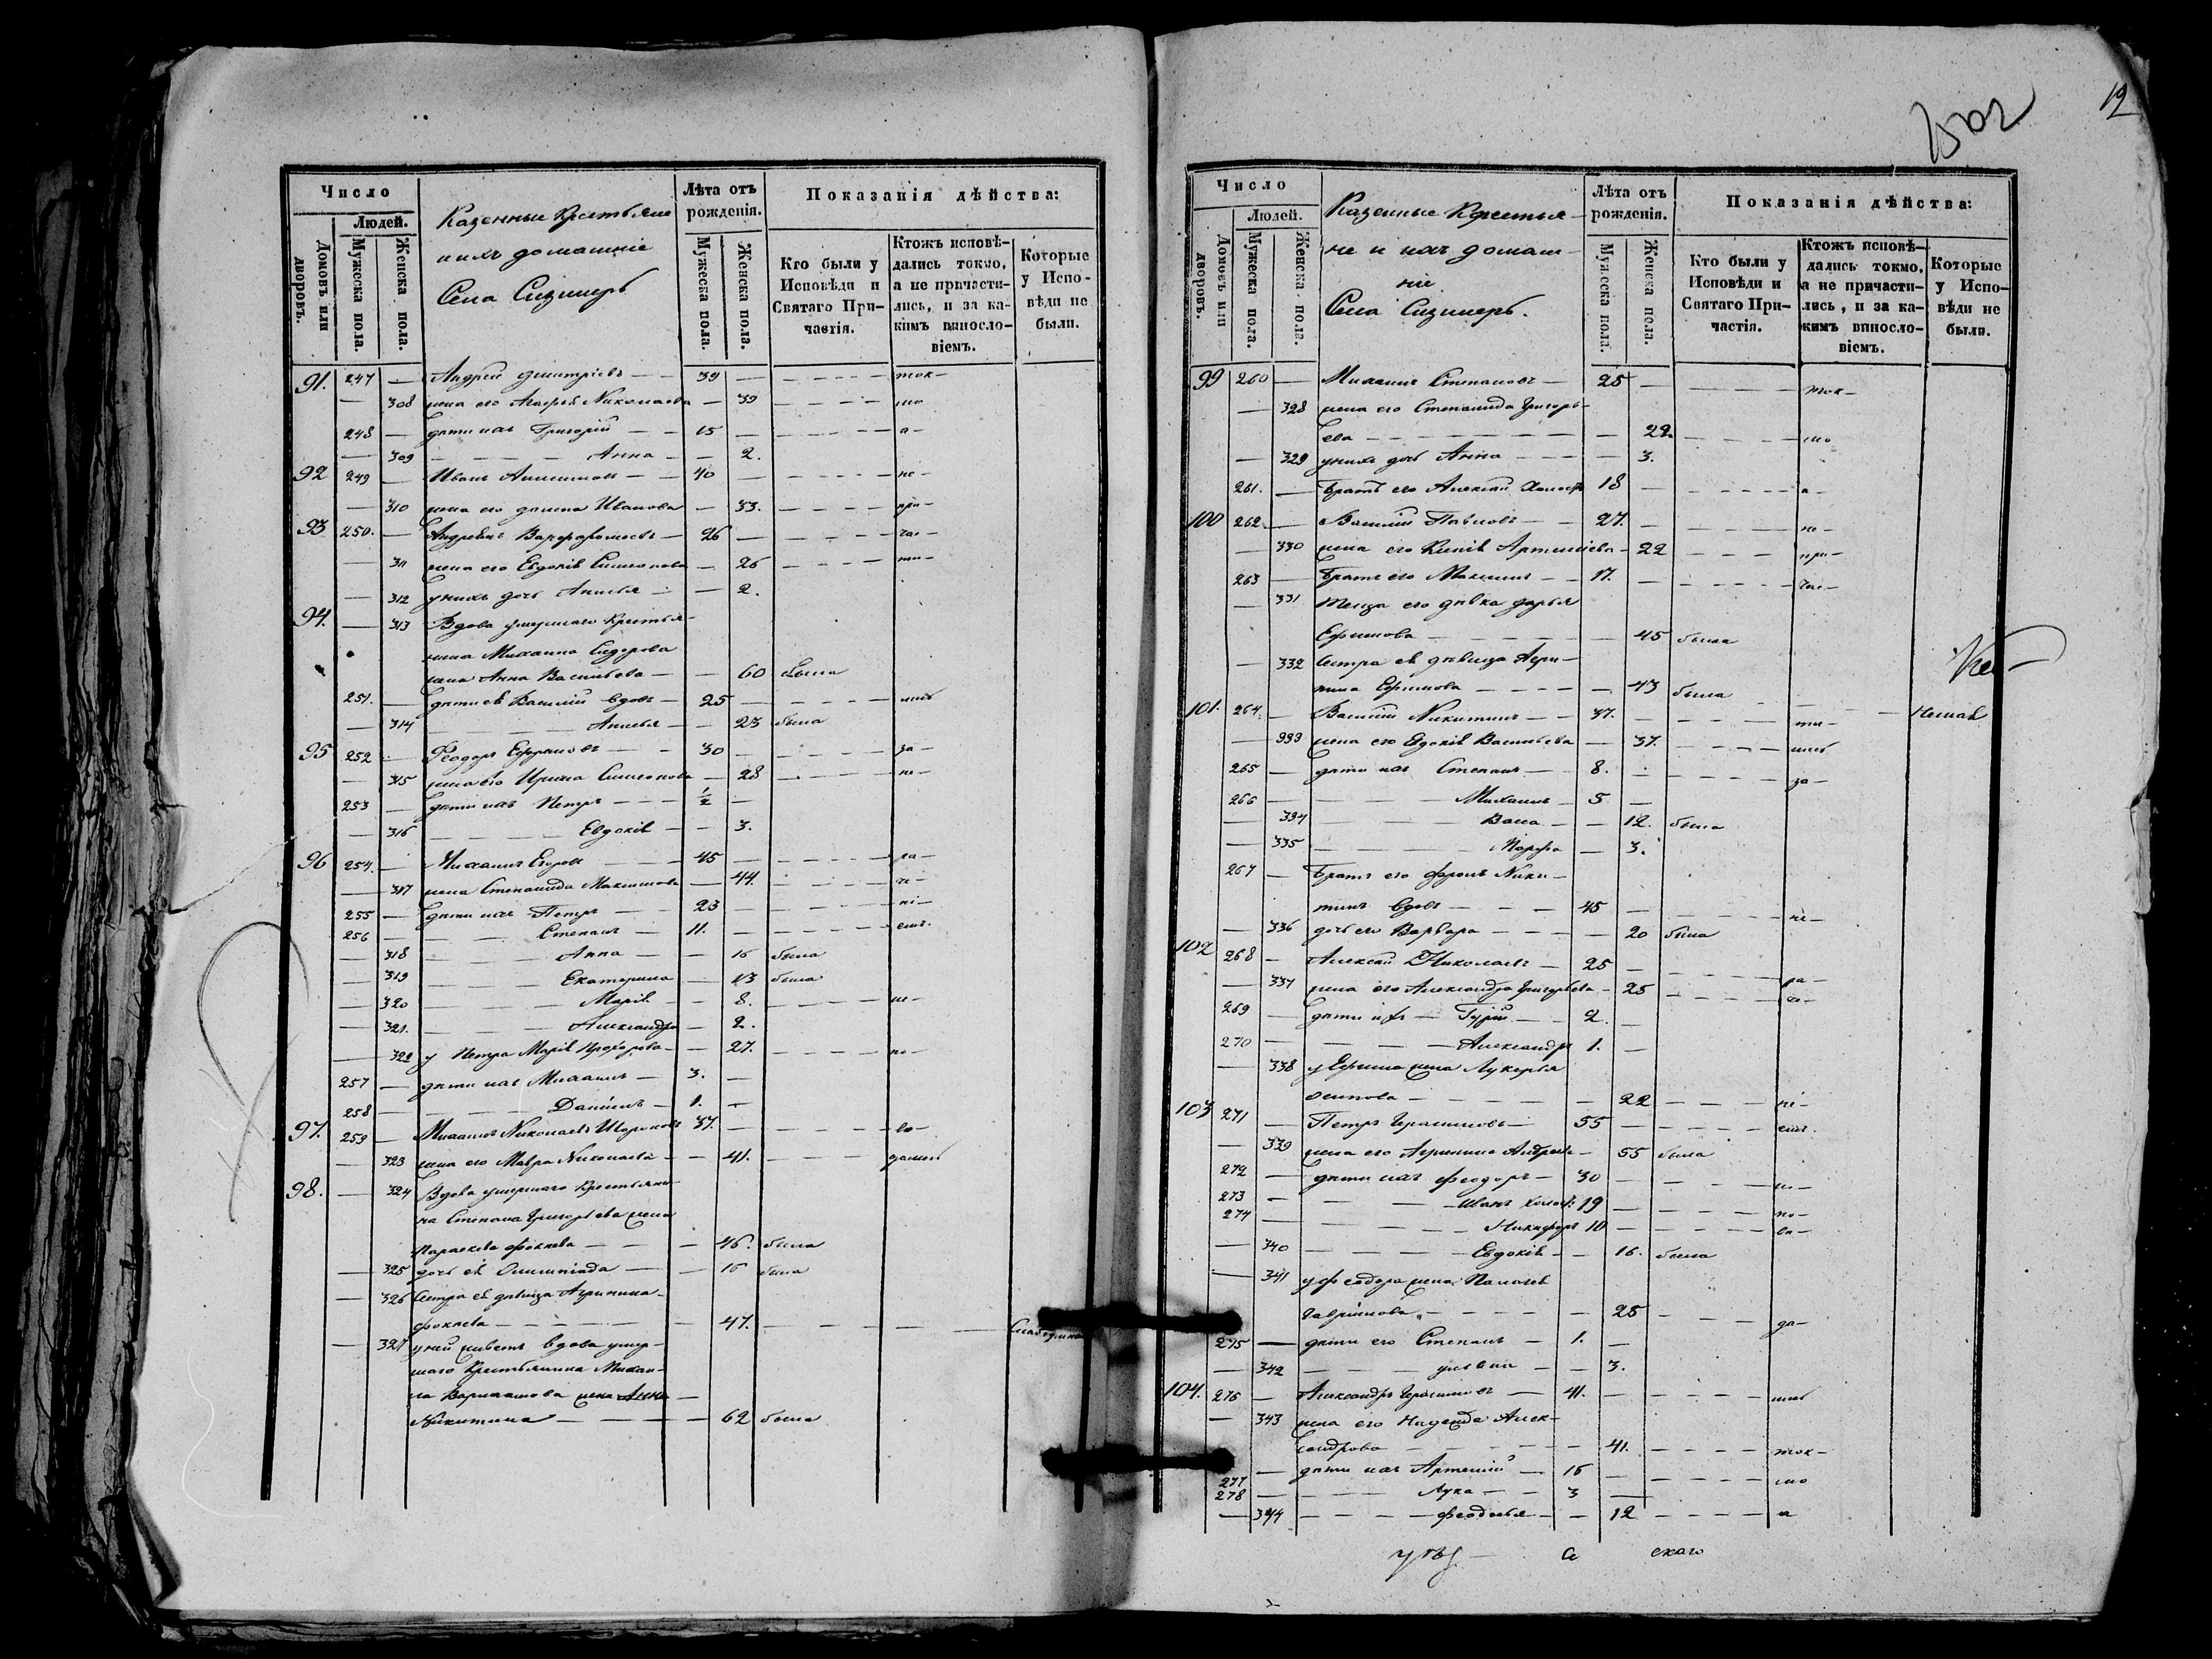 19
Число
Людей.
Домовъ или дворовъ.
Мужеска пола.
Женска пола.
Казенные Крестьяне
и ихъ домашніе
Села Сизинеръ
Лѣта отъ рожденія.
Мужеска пола.
Женска пола.
Показанія дѣйства:
Кто были у Исповѣди и Святаго Причастія.
Ктожъ исповѣдались токмо, а не причастились, и за какимъ винословіемъ.
Которые у Исповѣди не были.
91. 247 — Андрей Дмитріевъ — 39 — ток-
— 308 жена его Агафья Николаева — 39 мо
248 — дѣти ихъ Григорій — 15 — а-
— 309 Анна — 2.
92 249 — Иванъ — 40 — не-
— 310 жена его Иванова — 33. при-
93 250. — Варфоломеевъ — 26 — час-
— 311 жена его Евдокія Симеонова — 26 ти-
— 312 у нихъ дочь Анисья — 2.
94. — 313 Вдова умершаго Крестья-
нина Михаила Сидорова
жена Анна Васильева — 60 была
251. — дѣти ея Василій вдовъ — 25 —
— 314 Анисья — 23 была
95 252 — Феодоръ Ефремовъ — 30 — за-
— 315 жена его Ирина Симеонова — 28 не-
253 — дѣти ихъ Петръ — 1/2 —
— 316 Евдокія — 3.
96 254. — Михаилъ Егоровъ — 45 — ра-
— 317 жена Степанида Максимова — 44. че-
255 — дѣти ихъ Петръ — 23 — ні-
256 — Степанъ — 11. — емъ.
— 318 Анна — 16 была
— 319 Екатерина — 13 была
— 320 Марія — 8. не-
— 321. Александра — 2.
— 322 у Петра Марія Прохорова — 27. по-
257 — дѣти ихъ Михаилъ — 3. —
258 — Даніилъ — 1. —
97. 259 — Михаилъ Николаевъ — 37. — во-
— 323 жена его Мавра Николаева — 41.
98. — 324 Вдова умершаго Крестьяни-
на Степана Григорьева жена
Параскева Фокеева — 46. была
— 325 дочь ея Олимпіада — 16 была
— 326 Сестра ея дѣвица Агрипина
Фокеева — 47.
— 327 у ней живетъ вдова умер-
шаго Крестьянина Михаи-
ла Варламова жена Анна
Никитина — 62 была
Число
Людей.
Домовъ или дворовъ.
Мужеска пола.
Женска пола.
Казенные Крестья-
не и ихъ домаш-
ніе
Села Сизинеръ.
Лѣта отъ рожденія.
Мужеска пола.
Женска пола.
Показанія дѣйства:
Кто были у Исповѣди и Святаго Причастія.
Ктожъ исповѣдались токмо, а не причастились, и за какимъ винословіемъ.
Которые у Исповѣди не были.
99 260 — Михаилъ Степановъ — 25 — ток-
— 328 жена его Степанида Григорь-
ева — 22. мо
— 329 у нихъ дочь Анна — 3.
261. — Братъ его Алексѣй 18 — а-
100 262 — Василій Павловъ — 27. — не-
— 330 жена его Артеміева — 22 при-
263 — Братъ его Максимъ — 17. — час-
— 331 его дѣвка Дарья
Ефимова — 45 была
— 332 Сестра ея дѣвица Агри-
пина Ефимова — 43 была
101. 264. — Василій Никитинъ — 37. — ти-
— 333 жена его Евдокія Васильева — 37.
265 — дѣти ихъ Степанъ — 8. — за-
266 — Михаилъ — 5 —
— 334 Васса — 12. была
— 335 Марфа — 3.
267 — Братъ его Фролъ Ники-
тинъ вдовъ — 45 — не-
— 336 дочь его Варвара — 20 была
102 268 — Алексѣй Николаевъ — 25 — ра-
— 337 жена его Александра Григорьева — 25 че-
269 — дѣти ихъ — Гурій — 2. —
270 — Александръ 1. —
— 338 у Ефима жена Лукерья
Осипова — 22 ні-
103 271 — Петръ Герасимовъ — 55 — емъ.
— 339 жена его Агрипина Андреева — 55 была
272 — дѣти ихъ Феодоръ — 30 — не-
273 — Иванъ холостъ 19 — по-
274 — Никифоръ 10 — во-
— 340 Евдокія — 16. была
— 341 у Феодора жена Пелагея
Гаврилова — 25 да-
275 — дѣти его Степанъ — 1. —
— 342 — 3.
104. 276 — Александръ Герасимовъ — 41. —
— 343 жена его Надежда Алек-
сандрова — 41. ток-
277 — дѣти ихъ Артемій — 16 — мо
278 — Лука — 3 —
— 344 Феодосья — 12 а
скаго